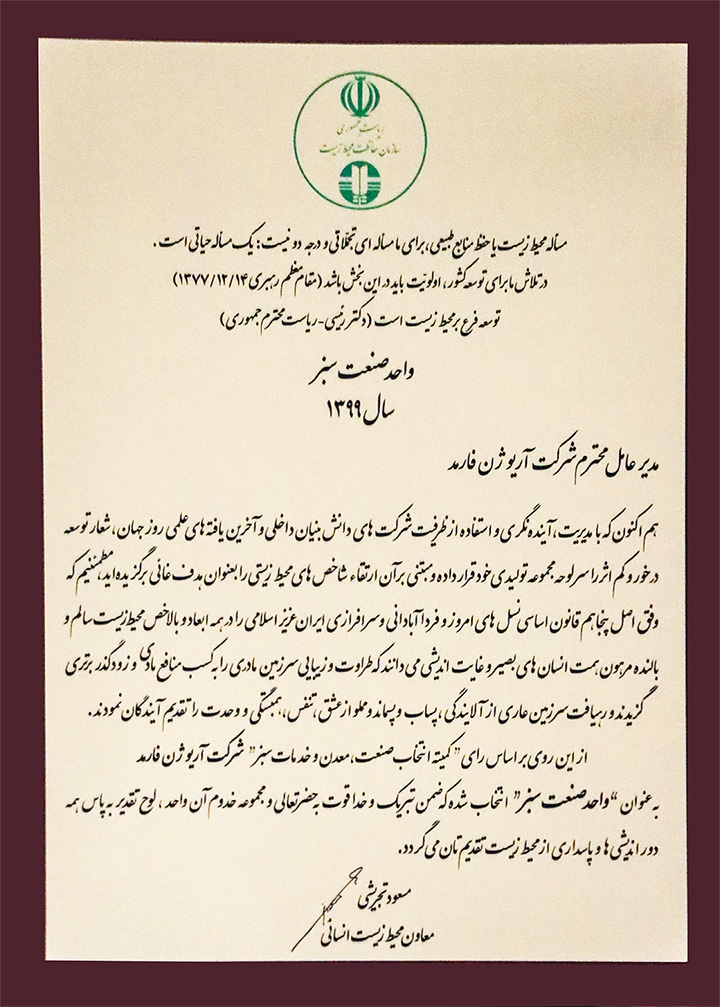 ریاست جمهوری
سازمان حفاظت محیط زیست
مسأله محیط زیست یا حفظ منابع طبیعی، برای ما مسأله ای تجمّلاتی و درجه دو نیست: یک مسأله حیاتی است .
در تلاش ما برای توسعه کشور، اولویّت باید در این بخش باشد (مقام معظم رهبری ۱۳۷۷/۱۲/۱۴)
توسعه فرع بر محیط زیست است (دکتر رئیسی - ریاست محترم جمهوری)
واحد صنعت سبز
سال ۱۳۹۹
مدیر عامل محترم شرکت آریو ژن فارمد
هم اکنون که با مدیریت، آینده نگری و استفاده از ظرفیت شرکت های دانش بنیان داخلی و آخرین یافته های علمی روز جهان، شعار توسعه
درخور و کم اثر را سر لوحه مجموعه تولیدی خود قرار داده و مبتنی بر آن ارتقاء شاخص های محیط زیستی را بعنوان هدف غائی برگزیده اید، مطمئنیم که
وفق اصل پنجاهم قانون اساسی نسل های امروز و فردا آبادانی و سرافرازی ایران عزیز اسلامی را در همه ابعاد و بالاخص محیط زیست سالم و
بالنده مرهون همت انسان های بصیر و غایت اندیشی می دانند که طراوت و زیبایی سرزمین مادری را به کسب منافع مادی و زودگذر برتری
گزیدند و رهیافت سرزمین عاری از آلایندگی، پساب و پسماند و مملو از عشق، تنفس، همبستگی و وحدت را تقدیم آیندگان نمودند.
از این روی بر اساس رای "کمیته انتخاب صنعت، معدن و خدمات سبز" شرکت آریو ژن فارمد
به عنوان "واحد صنعت سبز" انتخاب شده که ضمن تبریک و خدا قوت به حضرتعالی و مجموعه خدوم آن واحد، لوح تقدیر به پاس همه
دور اندیشی ها و پاسداری از محیط زیست تقدیم تان می گردد.
مسعود تجریشی
معاون محیط زیست انسانی